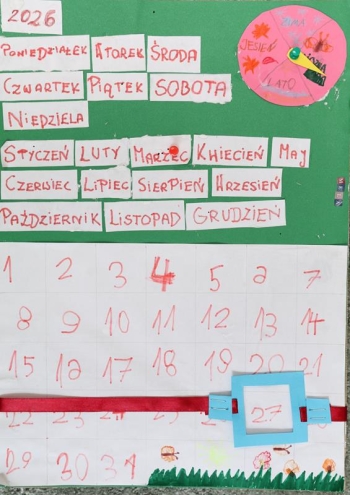 2026
PONIEDZIAŁEK WTOREK ŚRODA
CZWARTEK PIĄTEK SOBOTA
NIEDZIELA
JESIEŃ ZIMA LATO
STYCZEŃ LUTY MARZEC KWIECIEŃ MAJ
CZERWIEC LIPIEC SIERPIEŃ WRZESIEŃ
PAŹDZIERNIK LISTOPAD GRUDZIEŃ
1 2 3 4 5 6 7
8 9 10 11 12 13 14
15 16 17 18 19 20 21
22 23 24 25 27
29 30 31